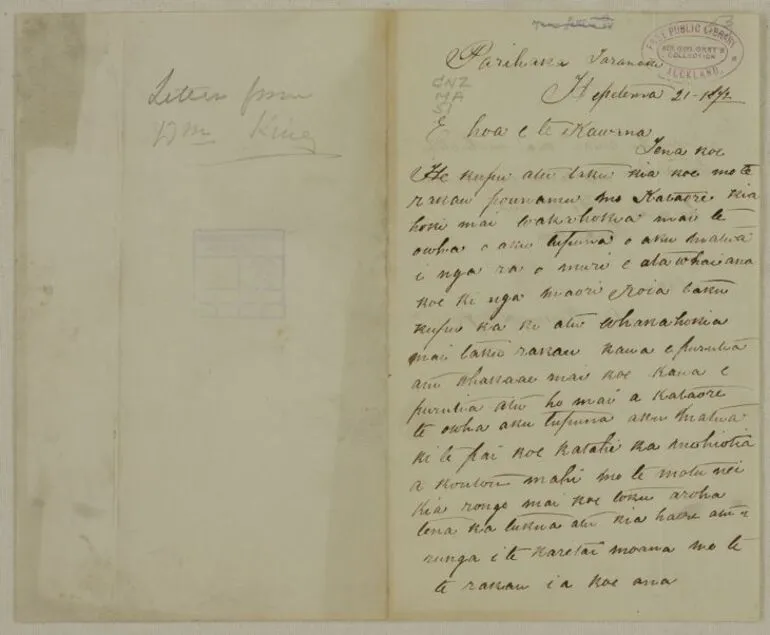 Letter from
Wm King
FREE PUBLIC LIBRARY
SIR GEO. GREY'S
COLLECTION
AUCKLAND
GNZ
MA
51
Parihaka Taranaki
Hepetema 21-1872
E hoa e te Kawana
Tena koe
He kupu atu taku kia koe mo te
rakau pounamu mo Kataore kia
hoki mai wakahokia mai te
owha o aku tupuna o aku matua
i nga ra o muri e atawhai ana
koe ki nga maori Koia taku
kupu ka ki atu whakahokia
mai taku rakau kaua e puritia
atu whakaae mai koe kaua e
puritia atu ho mai a Kataore
te owha aku tupuna aku matua
ki te pai koe katahi ka mohiotia
a koutou mahi mo te motu nei
Kia rongo mai koe toku aroha
tena ka tukua atu kia haere atu
runga i te karetai moana mo te
te rakau i a koe ana